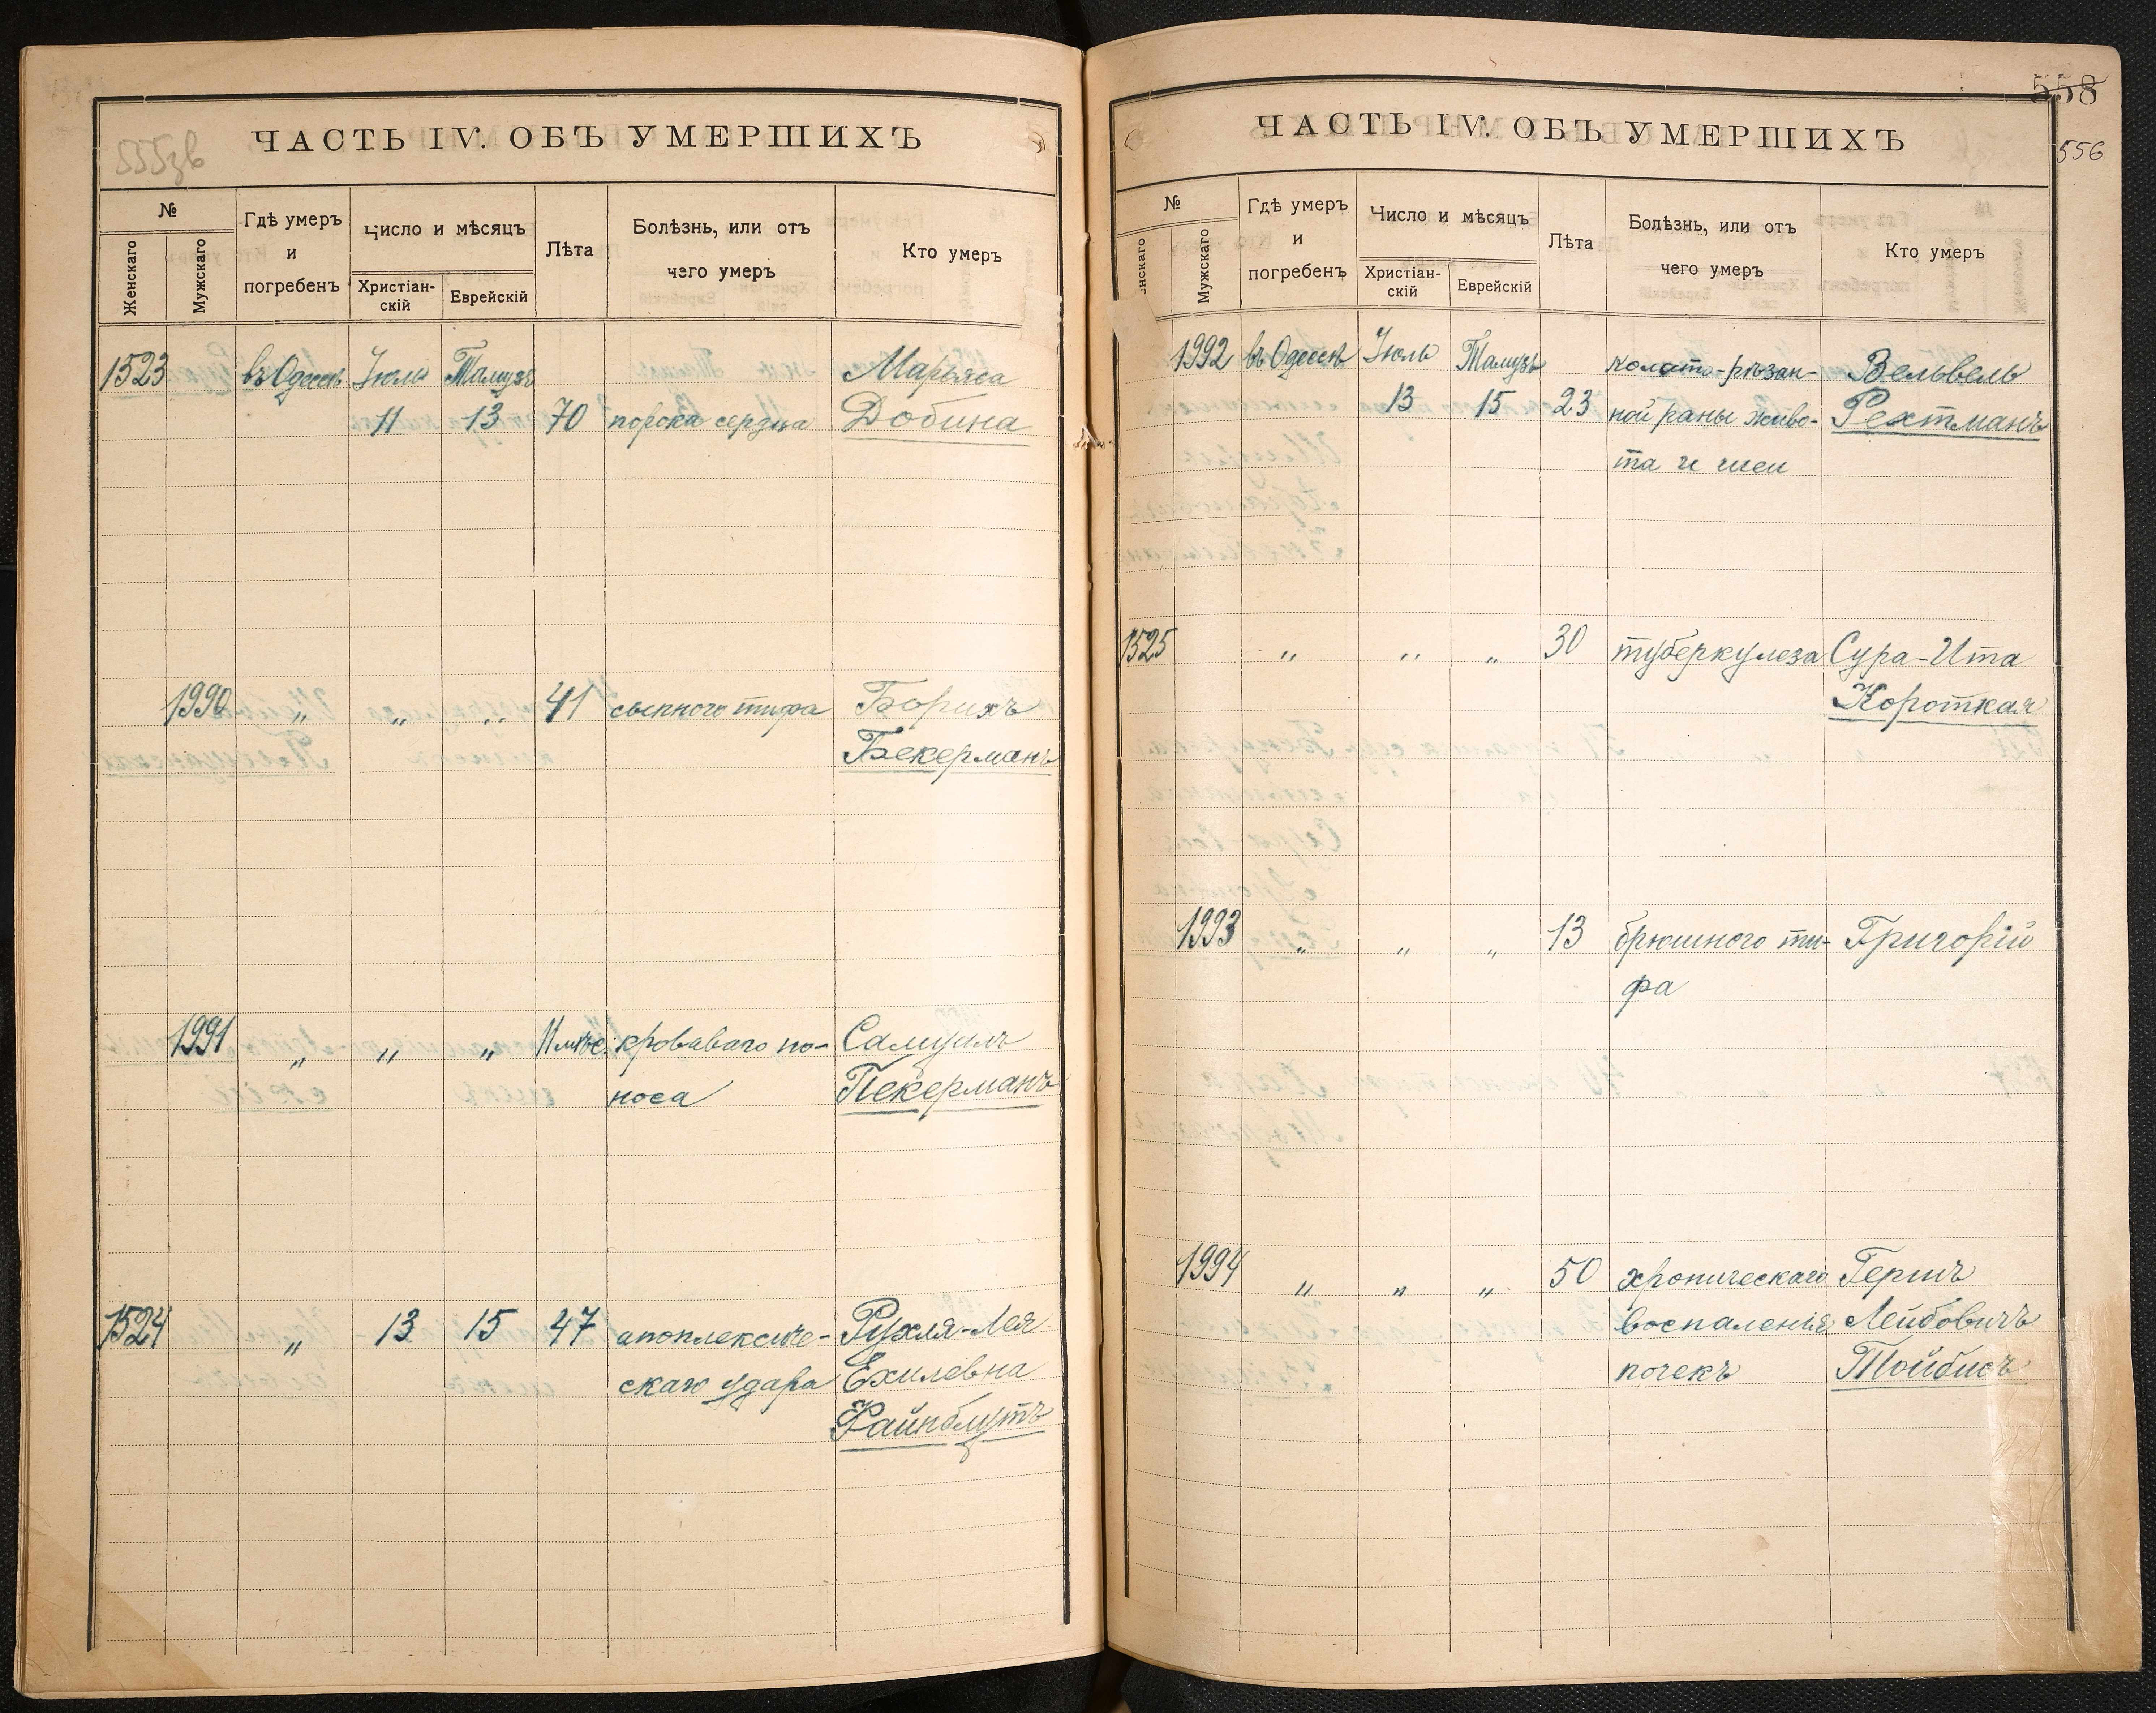 555зв
ЧАСТЬ IV. ОБЪ УМЕРШИХЪ
№
Женскаго
Мужскаго
Гдѣ умеръ
и
погребенъ
Число и мѣсяцъ
Христіан-
скій
Еврейскій
Лѣта
Болѣзнь, или отъ
чего умеръ
Кто умеръ
1523 въ Одессѣ Іюль Тамузъ Марьяса
11 13 70 порока сердца Добина
1990 „ „ „ 41 сыпного тифа Борихъ
Бекерманъ
1991 „ „ „ 11 мѣс. кроваваго по- Самуилъ
носа Пекерманъ
1524 „ 13 15 47 апоплексиче- Рухля-Лея
скаго удара Ехилевна
Файнблутъ
558
556
ЧАСТЬ IV. ОБЪ УМЕРШИХЪ
№
енскаго
Мужскаго
Гдѣ умеръ
и
погребенъ
Число и мѣсяцъ
Христіан-
скій
Еврейскій
Лѣта
Болѣзнь, или отъ
чего умеръ
Кто умеръ
1992 въ Одессѣ Іюль Тамузъ колото-рѣзан- Вельвель
13 15 23 ной раны живо- Рехтманъ
та и шеи
1525 „ „ „ 30 туберкулеза Сура-Ита
Короткая
1993 „ „ „ 13 брюшного ти- Григорій
фа
1994 „ „ „ 50 хроническаго Гершъ
воспаленія Лейбовичъ
почекъ Тойбисъ